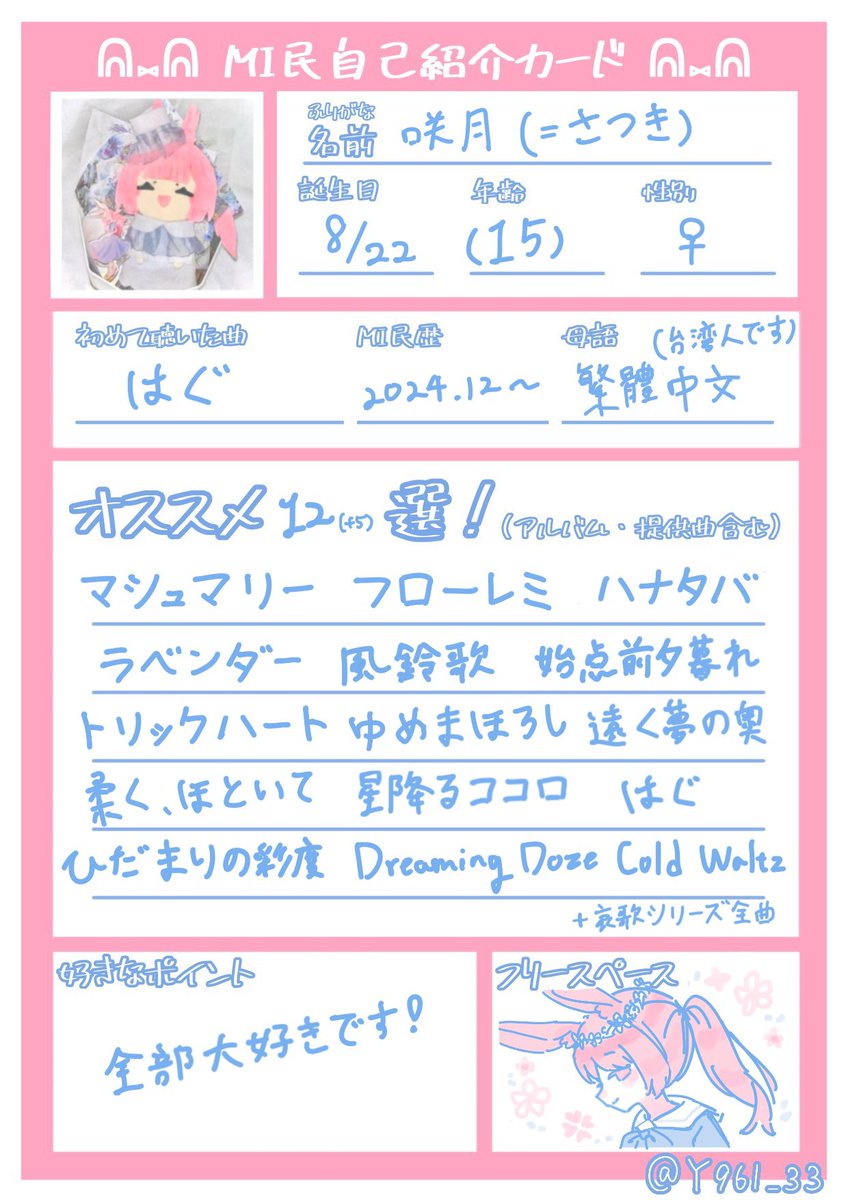 MI民自己紹介カード
ふりがな
名前 咲月(=さつき)
誕生日 年齢 性別
8/22 (15) ♀
初めて聴いた曲 MI民歴 母語 (台湾人です)
はぐ 2024.12〜 繁體中文
オススメ12(+5)選！(アルバム・提供曲含む)
マシュマリー フローレミ ハナタバ
ラベンダー 風鈴歌 始点前夕暮れ
トリックハート ゆめまほろし 遠く夢の奥
柔く、ほといて 星降るココロ はぐ
ひだまりの彩度 Dreaming Doze Cold Waltz
+哀歌シリーズ全曲
好きなポイント
全部大好きです！
フリースペース
@Y961_33